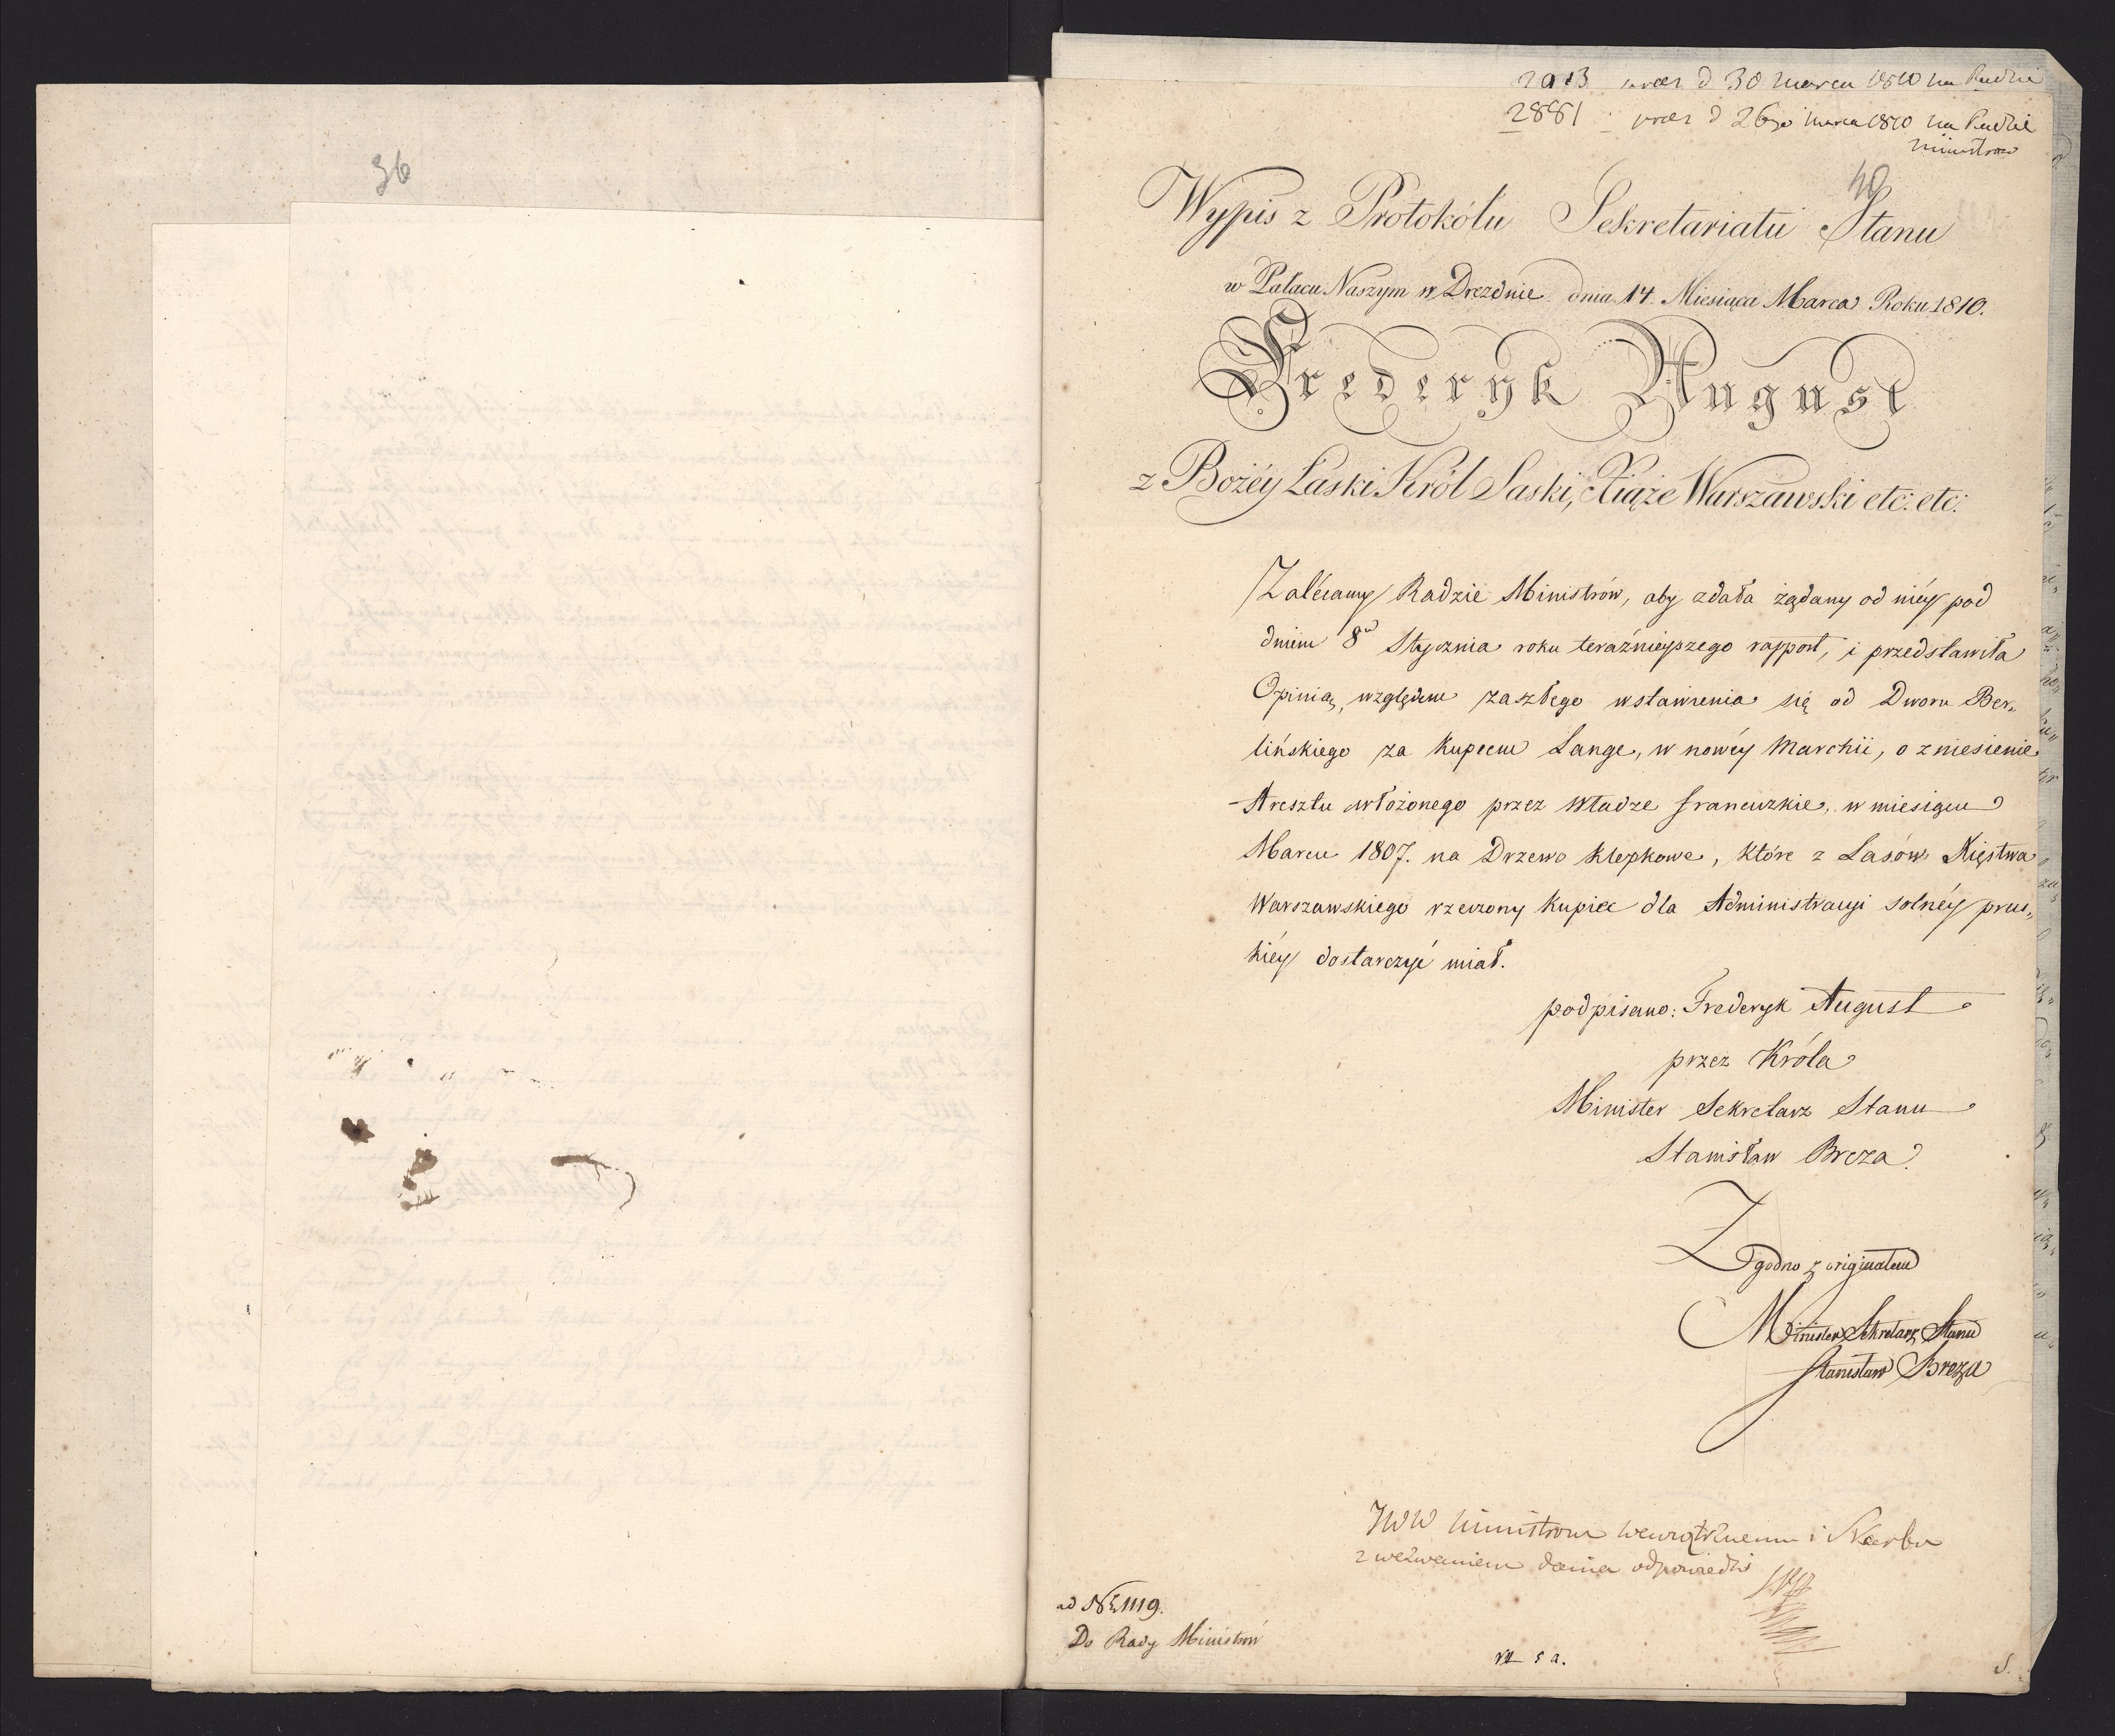 36
d 30 marca 1810 na Radzie
2881 praes d 26go marca 1810 na Radzie
Ministrow
40
Wypis z Protokólu Sekretariatu Stanu
w Pałacu Naszym w Dreznie dnia 14. Miesiąca Marca Roku 1810.
Frederyk August
z Bożéy Łaski Król Saski, Xiąże Warszawski etc: etc:
Zalécamy Radzie Ministrów, aby zdała żądany od niéy pod
dniem 8º Stycznia roku teraźnieyszego rapport, i przedstawiła
Opinią, względem zaszłego wstawienia się od Dworu Ber„
lińskiego za Kupcem Lange, w nowéy Marchii, o zniesienie
Aresztu włożonego przez Władze francuzkie, w miesiącu
Marcu 1807. na Drzewo klepkowe, które z Lasów Xięstwa
Warszawskiego rzeczony Kupiec dla Administracyi solnéy prus„
kiéy dostarczyć miał.
podpisano: Frederyk August
przez Króla
Minister Sekretarz Stanu
Stanisław Breza
Zgodno z originałem
Minister Sekretarz Stanu
Stanisław Breza
JWW Ministrom Wewnętrznemu i Skarbu
z wezwaniem dania odpowiedzi
ad № 1119.
Do Rady Ministrów
VII 5 a.
S.